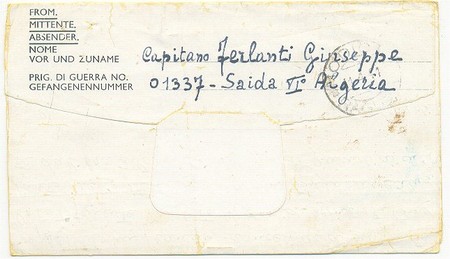 FROM,
MITTENTE,
ABSENDER,
NOME
VOR UND ZUNAME
PRIG. DI GUERRA NO.
GEFANGENENNUMMER
Capitano Zerlanti Giuseppe
01337 - Saida VIº Algeria